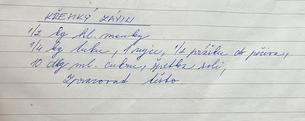 KŘEHKÝ ZÁVIN
1/2 kg hl. mouky
1/4 kg tuku, 1 vejce, 1/2 prášku do pečiva,
10 dkg ml. cukru, špetka soli,
Zpracovat těsto